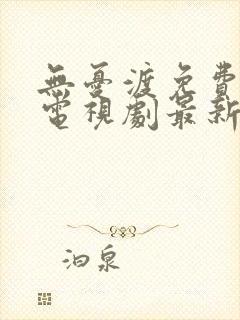 無憂渡免費
電視劇最新
泊泉